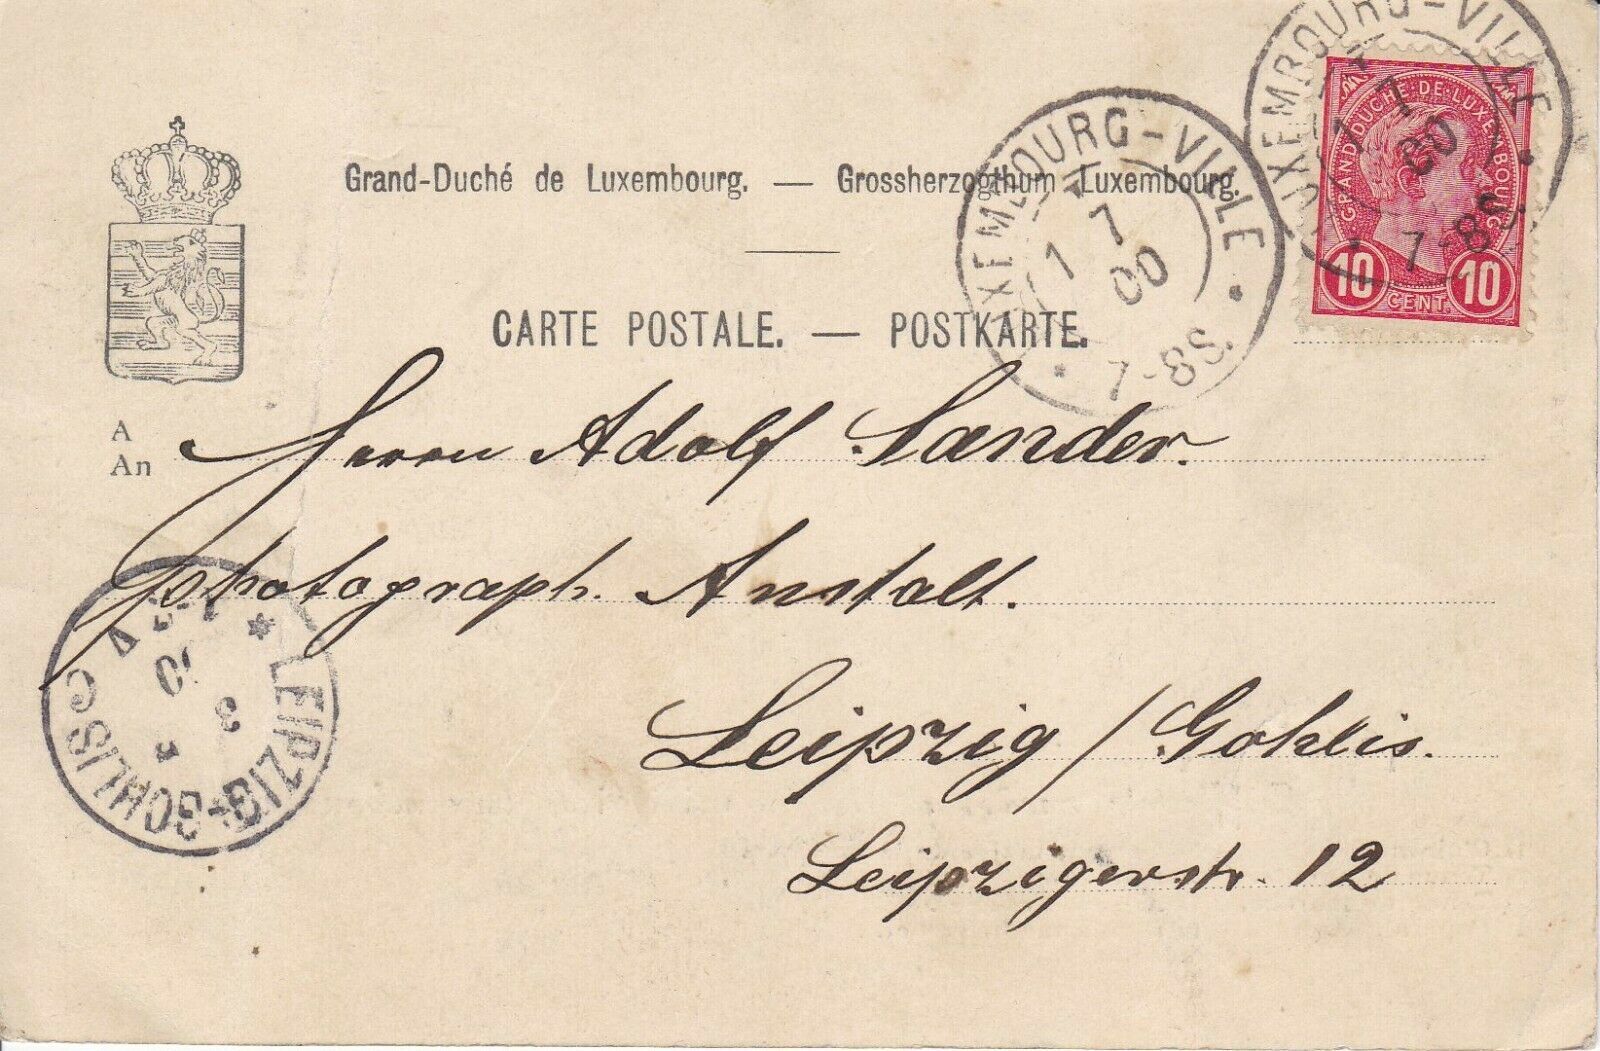 Grand-Duché de Luxembourg. — Grossherzogthum Luxembourg.
CARTE POSTALE. — POSTKARTE.
LUXEMBOURG-VILLE
1 7
00
7-8S.
LUXEMBOURG-VILLE
1 7
00
7-8S.
GRAND DUCHÉ DE LUXEMBOURG
10 CENT. 10
A
An
Herrn Adolf Sander.
photograph. Anstalt.
Leipzig / Gohlis.
Leipzigerstr. 12
LEIPZIG-GOHLIS
3
00
V